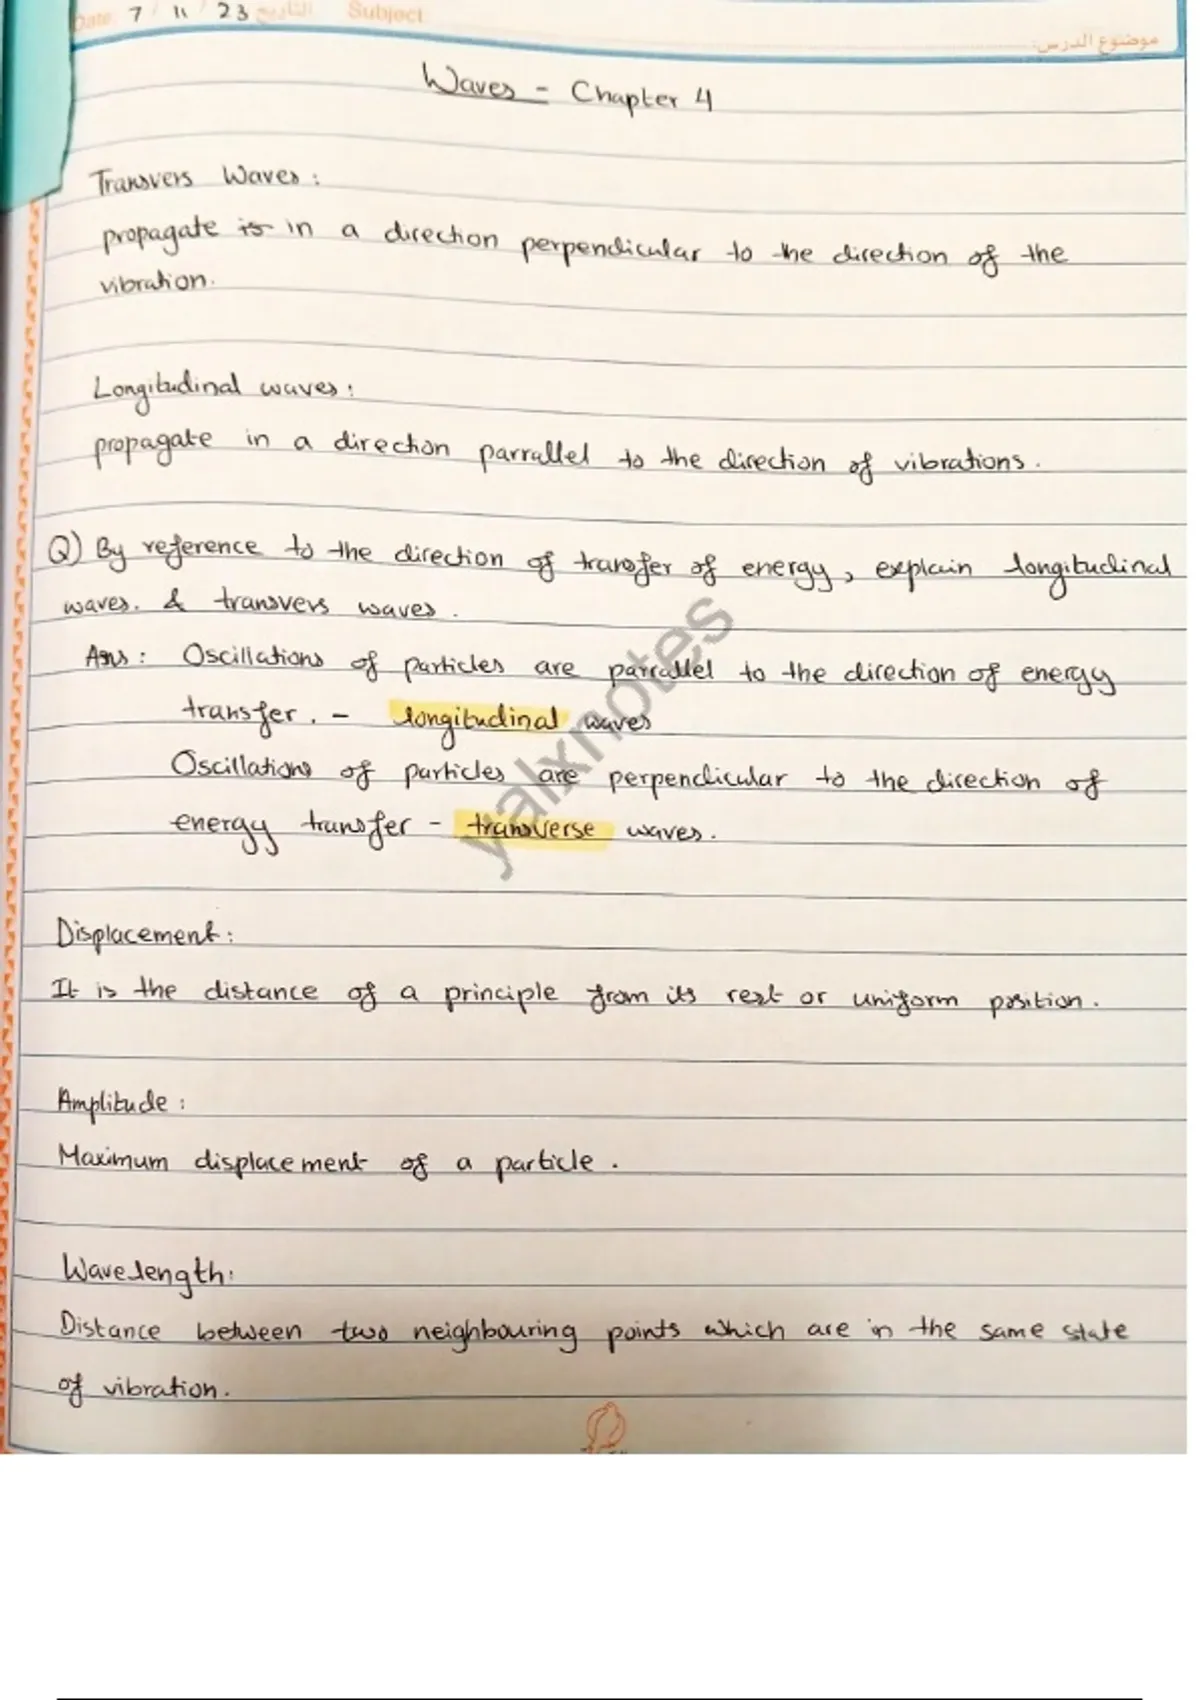 Date 7 / 11 / 23 التاريخ Subject
موضوع الدرس:
Waves - Chapter 4
Transvers Waves :
propagate is in a direction perpendicular to the direction of the
vibration.
Longitudinal waves :
propagate in a direction parrallel to the direction of vibrations.
Q) By reference to the direction of transfer of energy, explain longitudinal
waves. & transvers waves.
Ans : Oscillations of particles are parrallel to the direction of energy
transfer. - longitudinal waves
Oscillations of particles are perpendicular to the direction of
energy transfer - transverse waves.
yalxnotes
Displacement :
It is the distance of a principle from its rest or uniform position.
Amplitude :
Maximum displacement of a particle.
Wavelength:
Distance between two neighbouring points which are in the same state
of vibration.